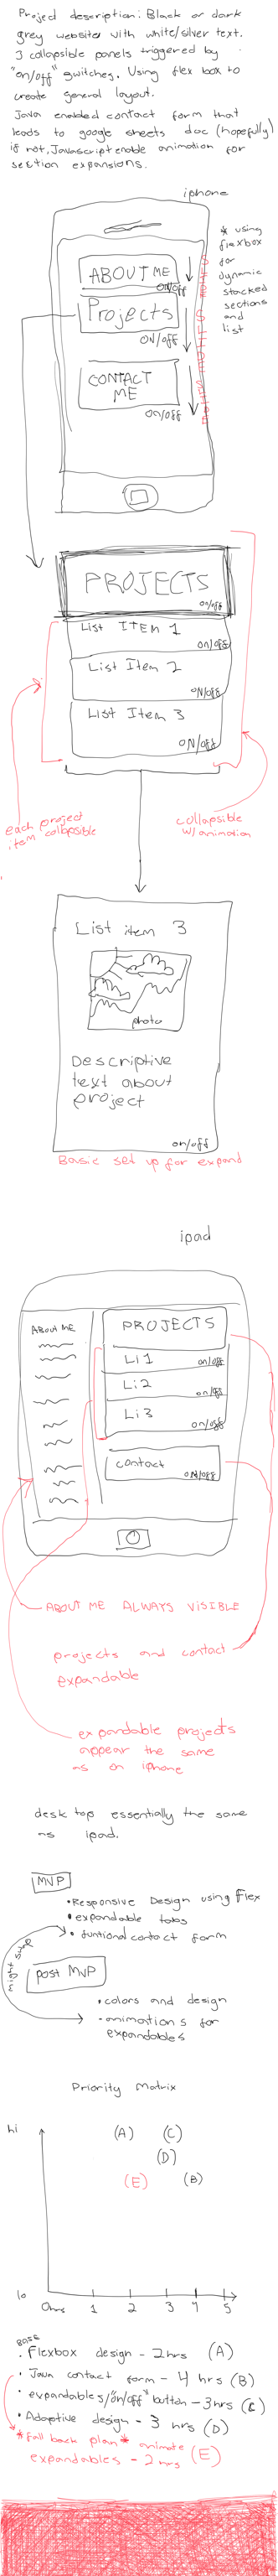 Project description: Black or dark
grey website with white/silver text.
3 collapsible panels triggered by
"on/off" switches. Using flex box to
create general layout.
Java enabled contact form that
leads to google sheets doc (hopefully)
if not, Javascript enable animation for
section expansions.
iphone
* using
flexbox
for
dynamic
stacked
sections
and
list
ABOUT ME
ON/OFF
Projects
ON/Off
CONTACT
ME
on/off
PROJECTS
on/off
List ITEm 1
on/off
List Item 2
ON/off
List Item 3
ON/off
each project
item collapsible
collapsible
w/animation
List item 3
photo
Descriptive
text about
project
on/off
Basic set up for expand
ipad
ABOUT ME
PROJECTS
Li 1
on/off
Li 2
on/off
Li 3
on/off
contact
ON/off
ABOUT ME ALWAYS VISIBLE
projects and contact
expandable
expandable projects
appear the same
as on iphone
desktop essentially the same
as ipad.
MVP
• Responsive Design using Flex
• expandable tabs
• funtional contact form
might swap
post MVP
• colors and design
• animations for
expandables
Priority Matrix
hi
(A) (C)
(D)
(E) (B)
lo
0hrs 1 2 3 4 5
BASE
• Flexbox design - 2hrs (A)
• Java contact form - 4 hrs (B)
• expandables/"on/off" button - 3hrs (C)
• Adaptive design - 3 hrs (D)
*fall back plan* animate
expandables - 2 hrs (E)